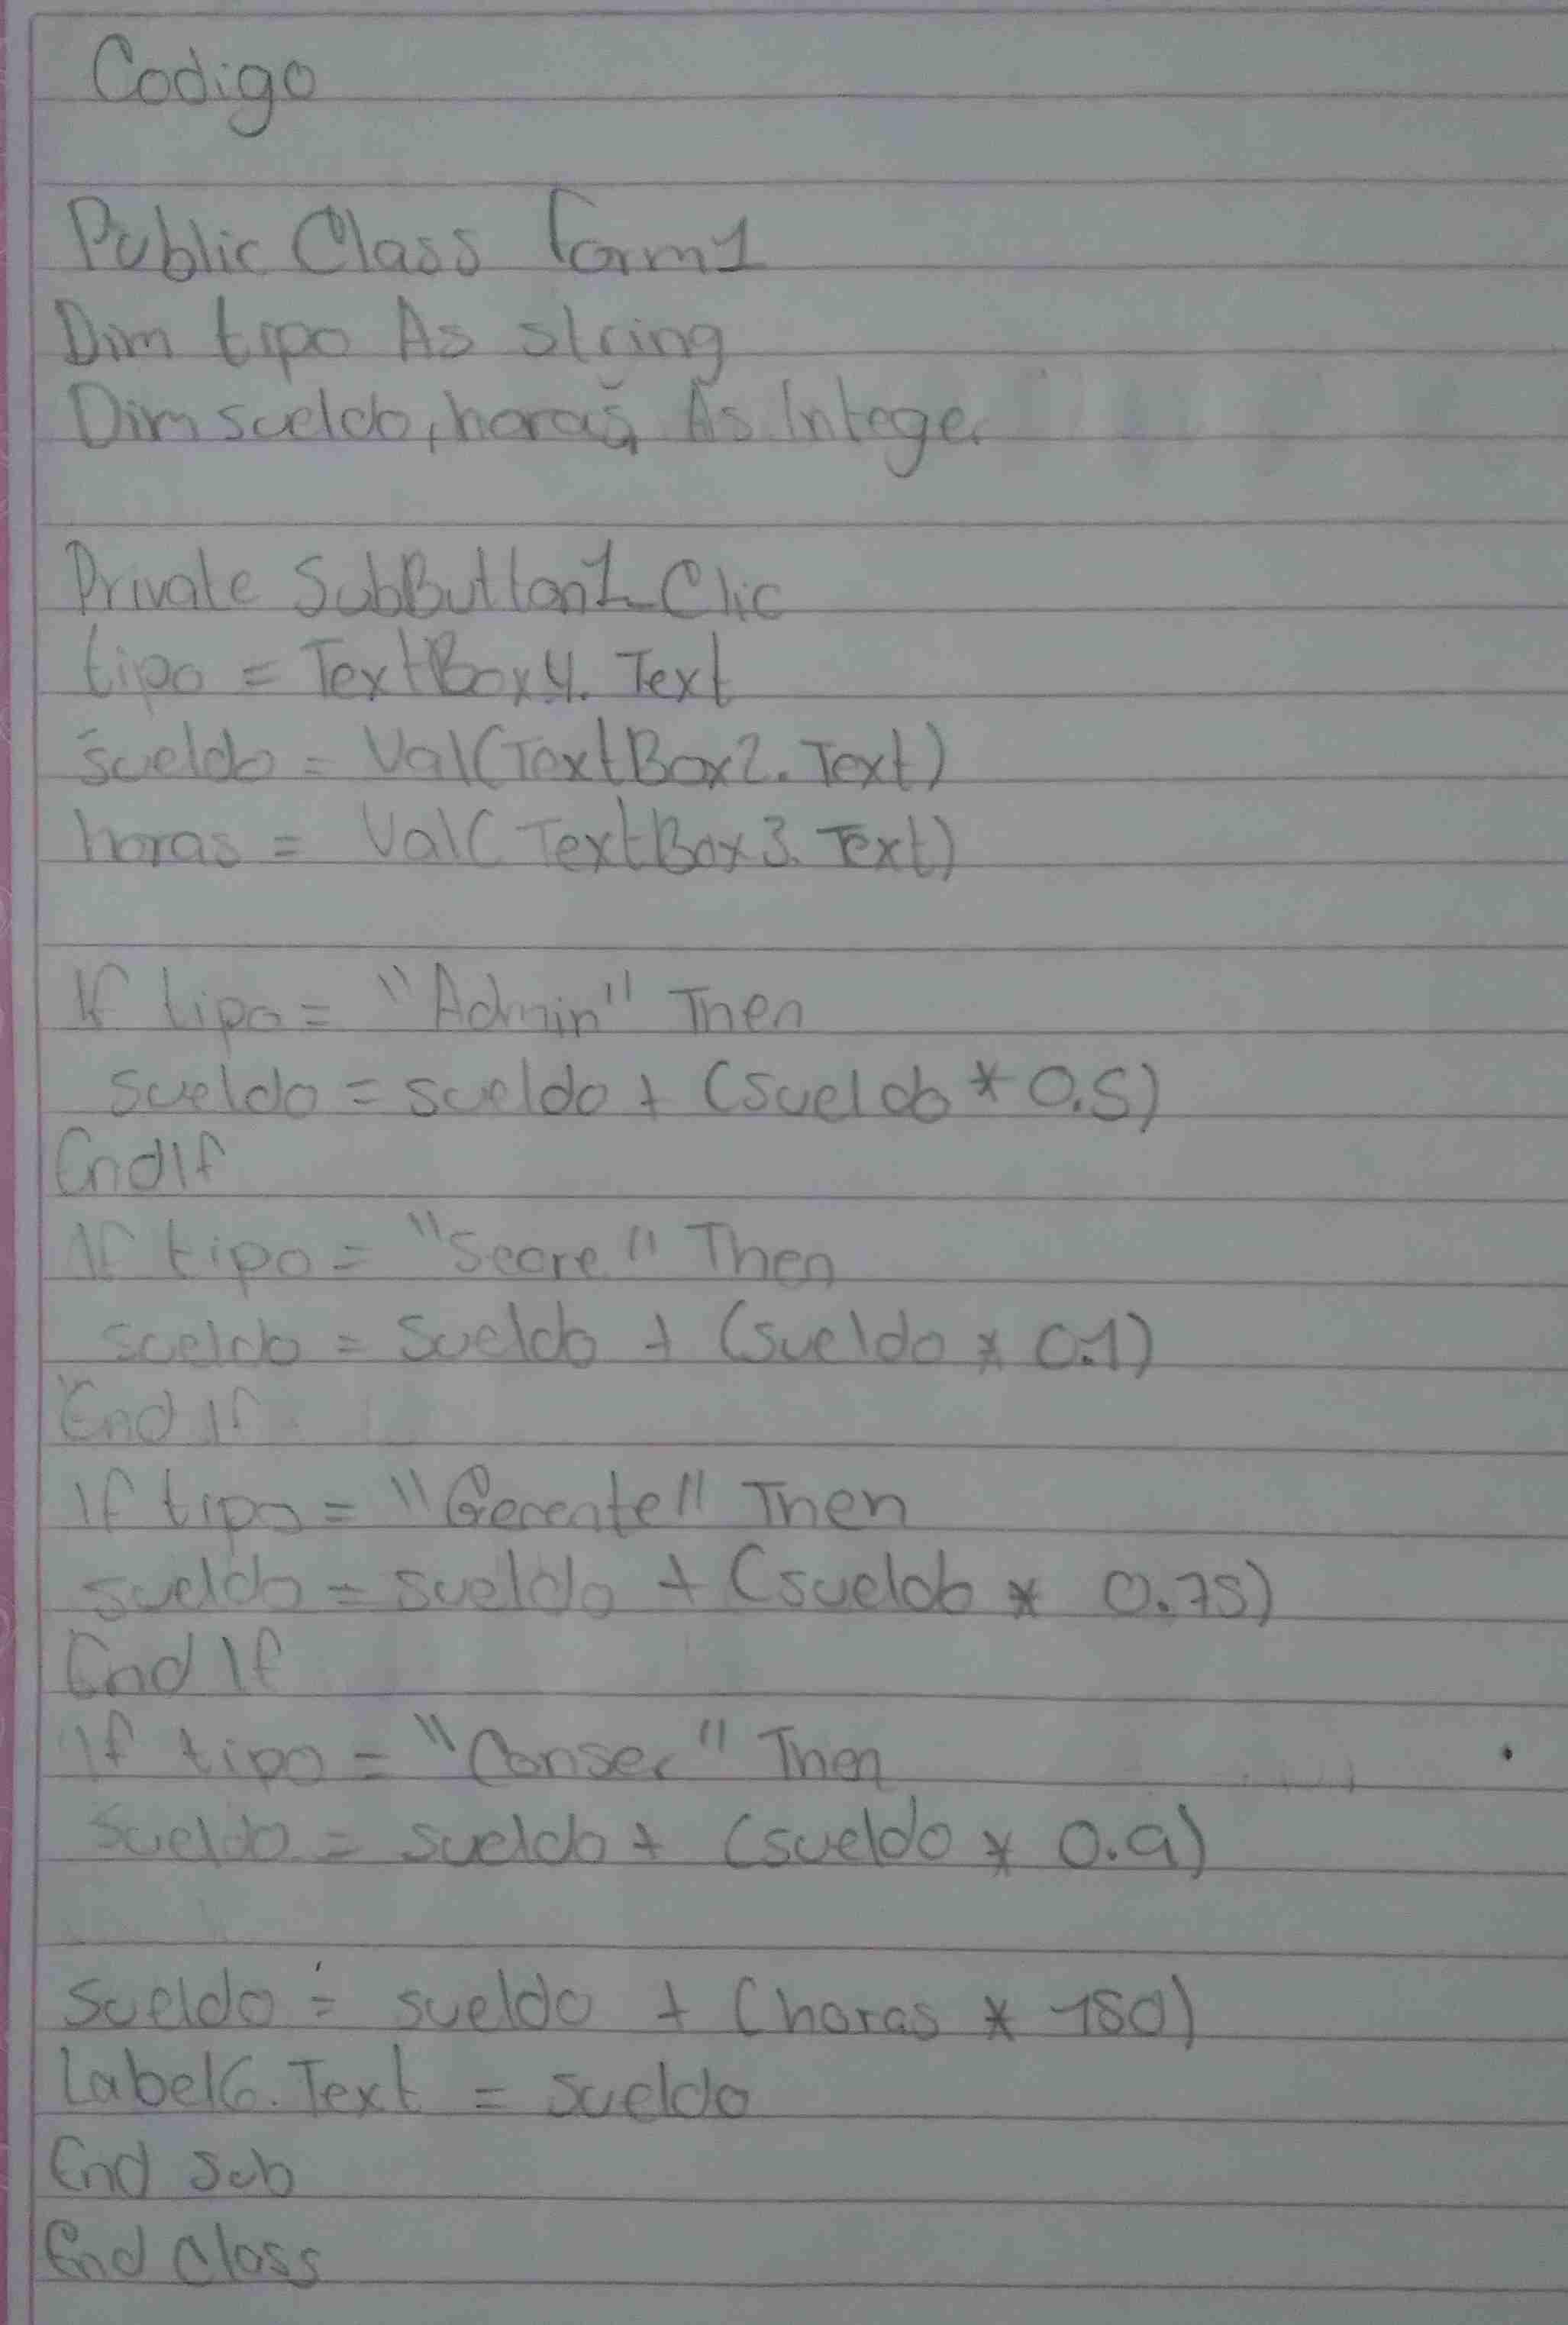 Codigo
Public Class Form1
Dim tipo As string
Dim sueldo, horas, As Intege.
Private SubButton1_Clic
tipo = TextBox4. Text
sueldo = Val(TextBox2. Text)
horas = Val( TextBox3. Text)
If tipo = "Admin" Then
sueldo = sueldo + (sueldo * 0.5)
EndIf
If tipo = "Secre" Then
sueldo = sueldo + (sueldo * 0.1)
End If
If tipo = "Gerente" Then
sueldo = sueldo + (sueldo * 0.75)
End If
If tipo = "Conser" Then
sueldo = sueldo + (sueldo * 0.9)
sueldo = sueldo + (horas * 150)
Label6. Text = sueldo
End Sub
End Class